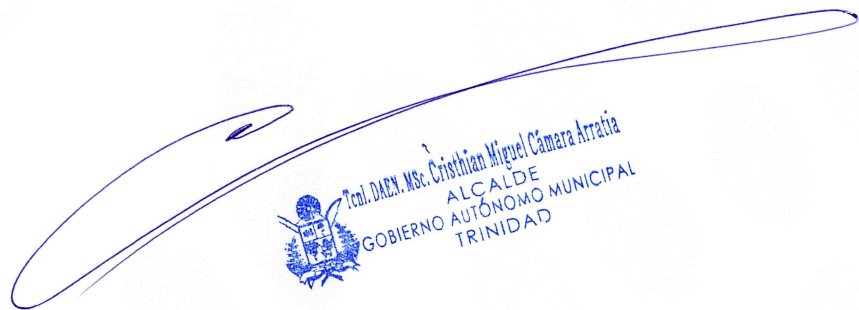 Tcnl. DAEN. MSc. Cristhian Miguel Cámara Arratia
ALCALDE
GOBIERNO AUTÓNOMO MUNICIPAL
TRINIDAD